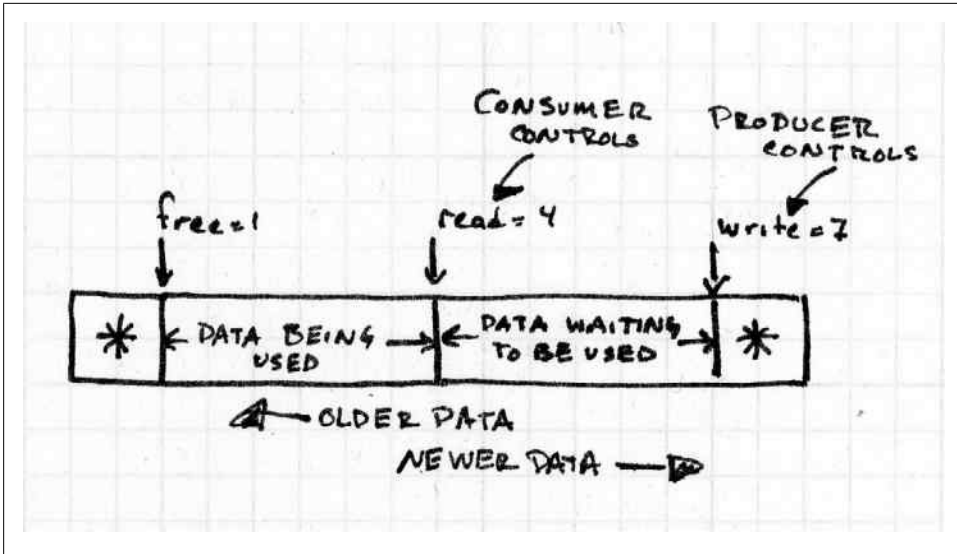 CONSUMER
CONTROLS
PRODUCER
CONTROLS
free=1
read=4
write=7
* DATA BEING USED DATA WAITING TO BE USED *
OLDER DATA
NEWER DATA